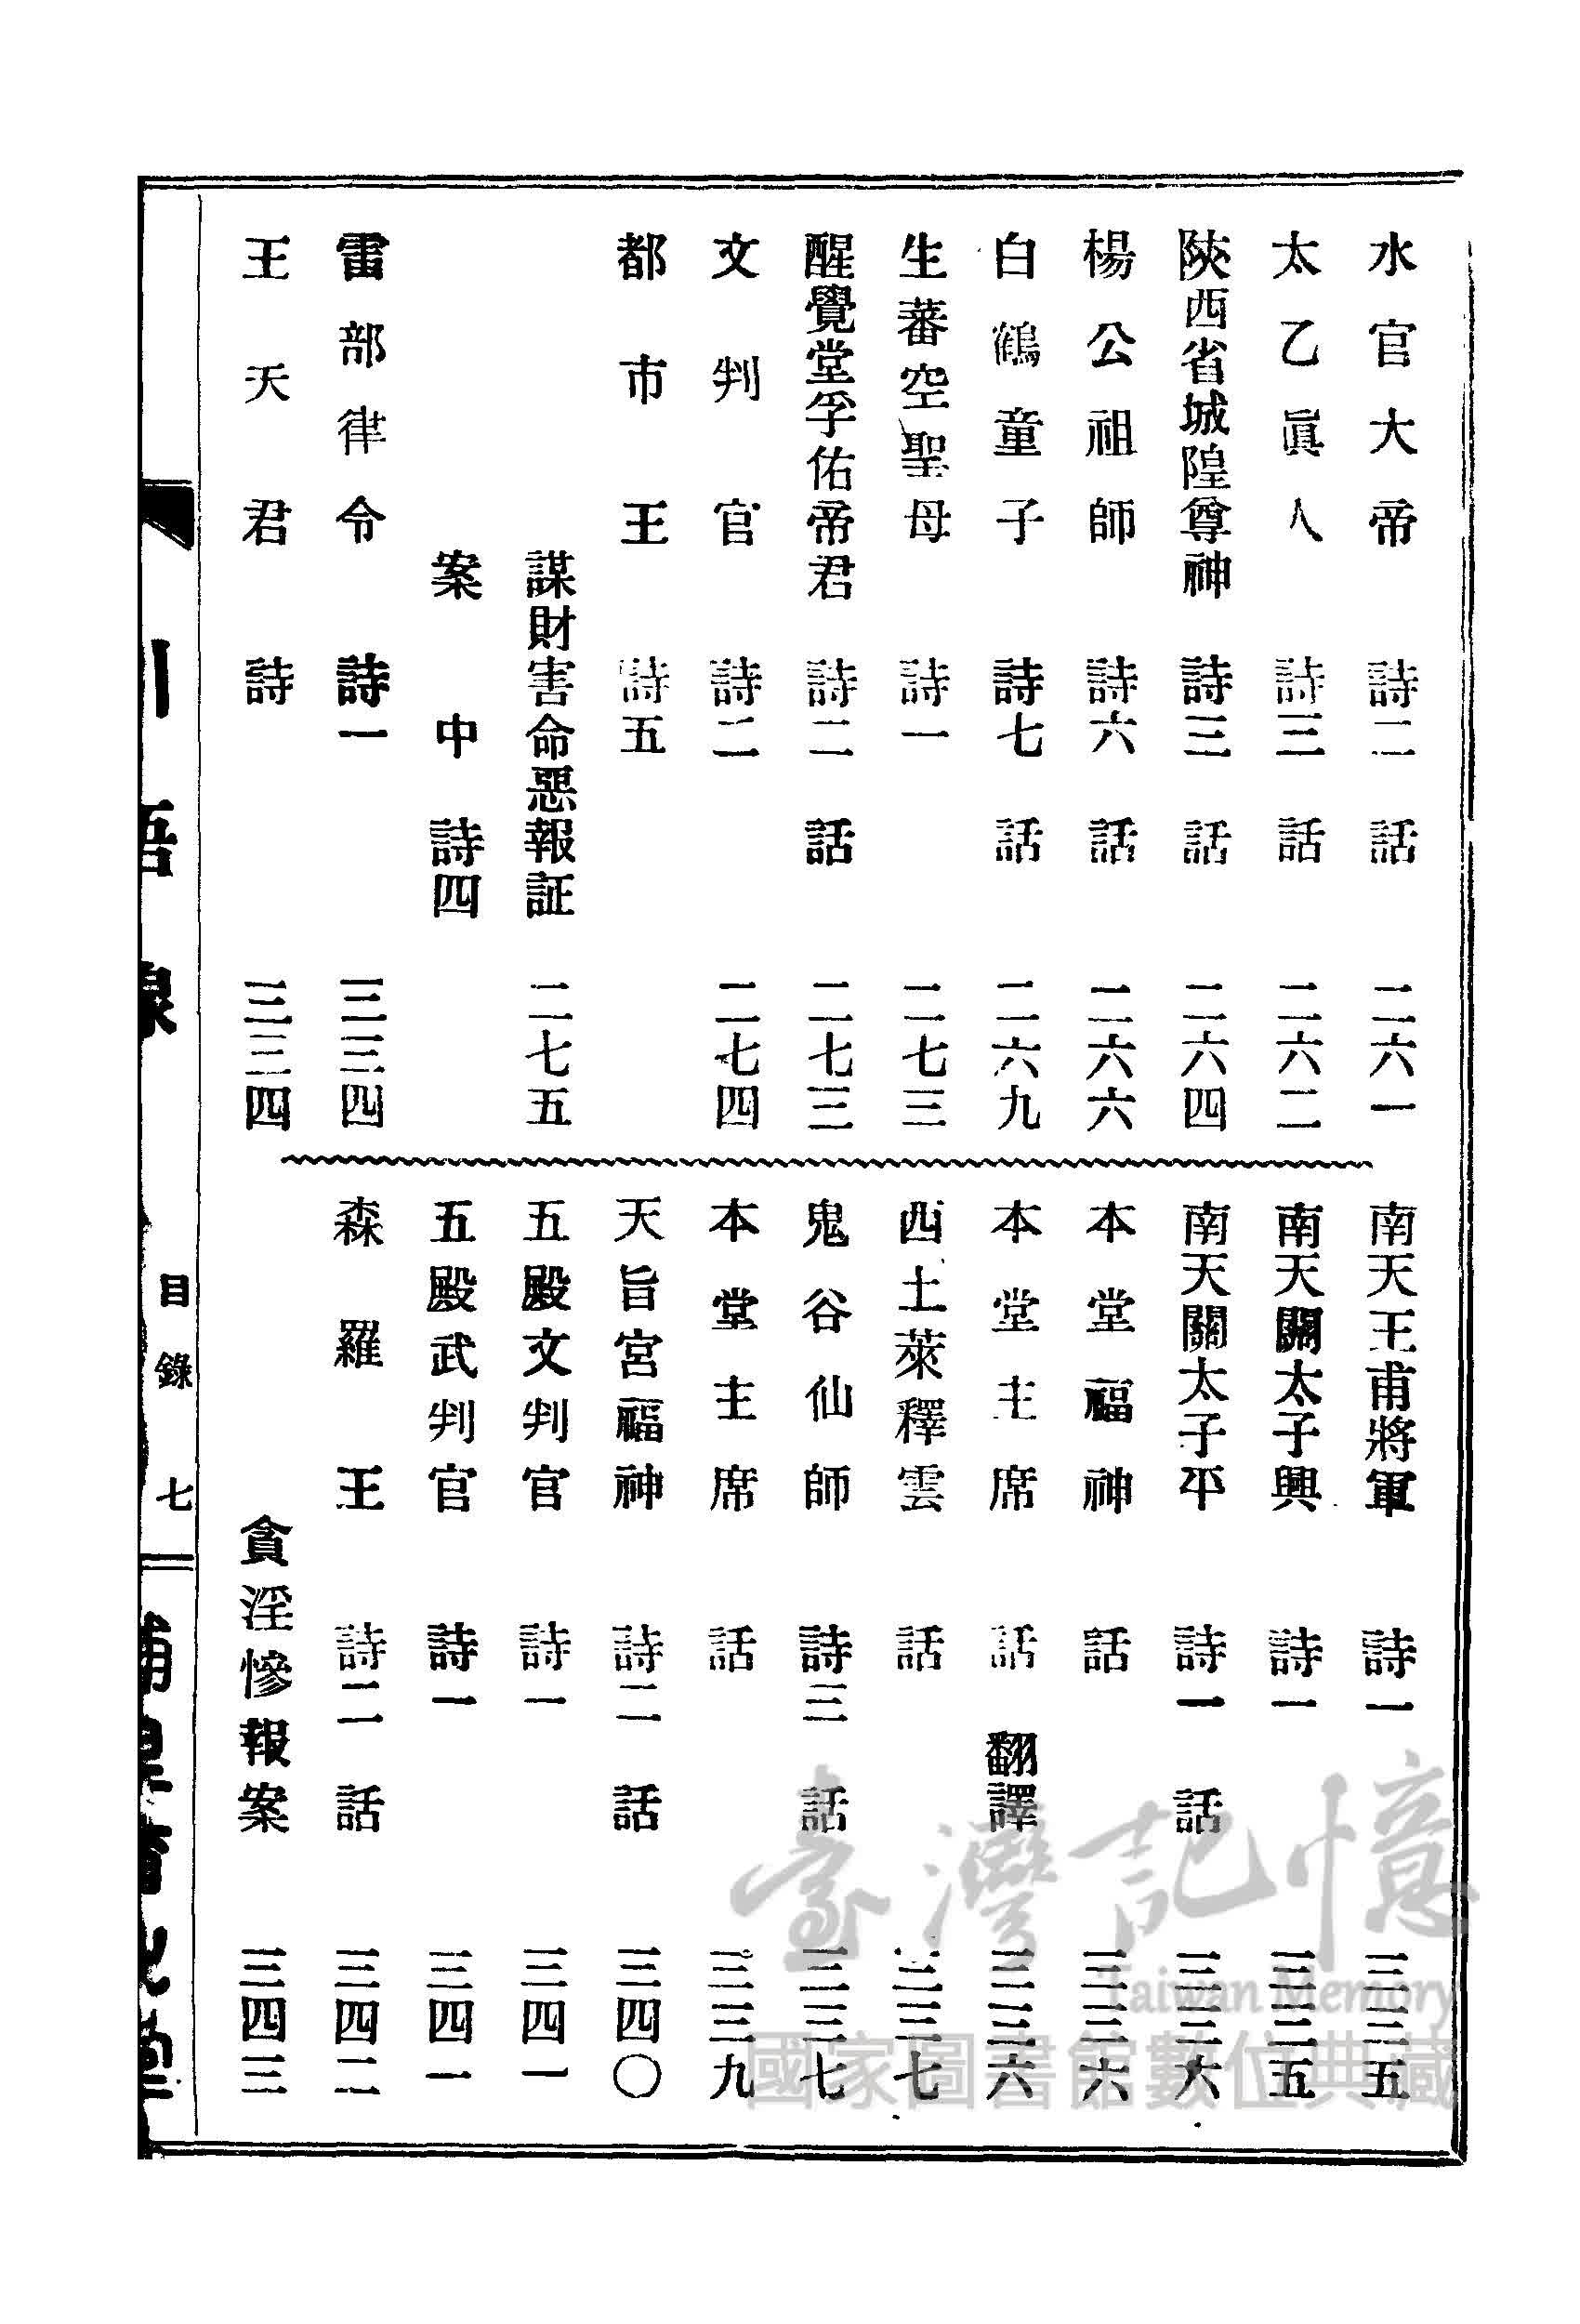 水官大帝 詩二 話 二六一
太乙眞人 詩三 話 二六二
陝西省城隍尊神 詩三 話 二六四
楊公祖師 詩六 話 二六六
白鶴童子 詩七 話 二六九
生蕃空聖母 詩一 二七三
醒覺堂孚佑帝君 詩二 話 二七三
文判官 詩二 二七四
都市王 詩五
謀財害命惡報証 二七五
案中詩四
雷部律令 詩一 三三四
王天君 詩 三三四
南天王甫將軍 詩一 三三五
南天關太子興 詩一 三三五
南天關太子平 詩一 話 三三六
本堂福神 話 三三六
本堂主席 話 翻譯 三三六
西土萊釋雲 話 三三七
鬼谷仙師 詩三 話 三三七
本堂主席 話 三三九
天旨宮福神 詩二 話 三四〇
五殿文判官 詩一 三四一
五殿武判官 詩一 三四一
森羅王 詩二 話 三四二
貪淫慘報案 三四三
目錄 七
臺灣記憶
Taiwan Memory
國家圖書館數位典藏